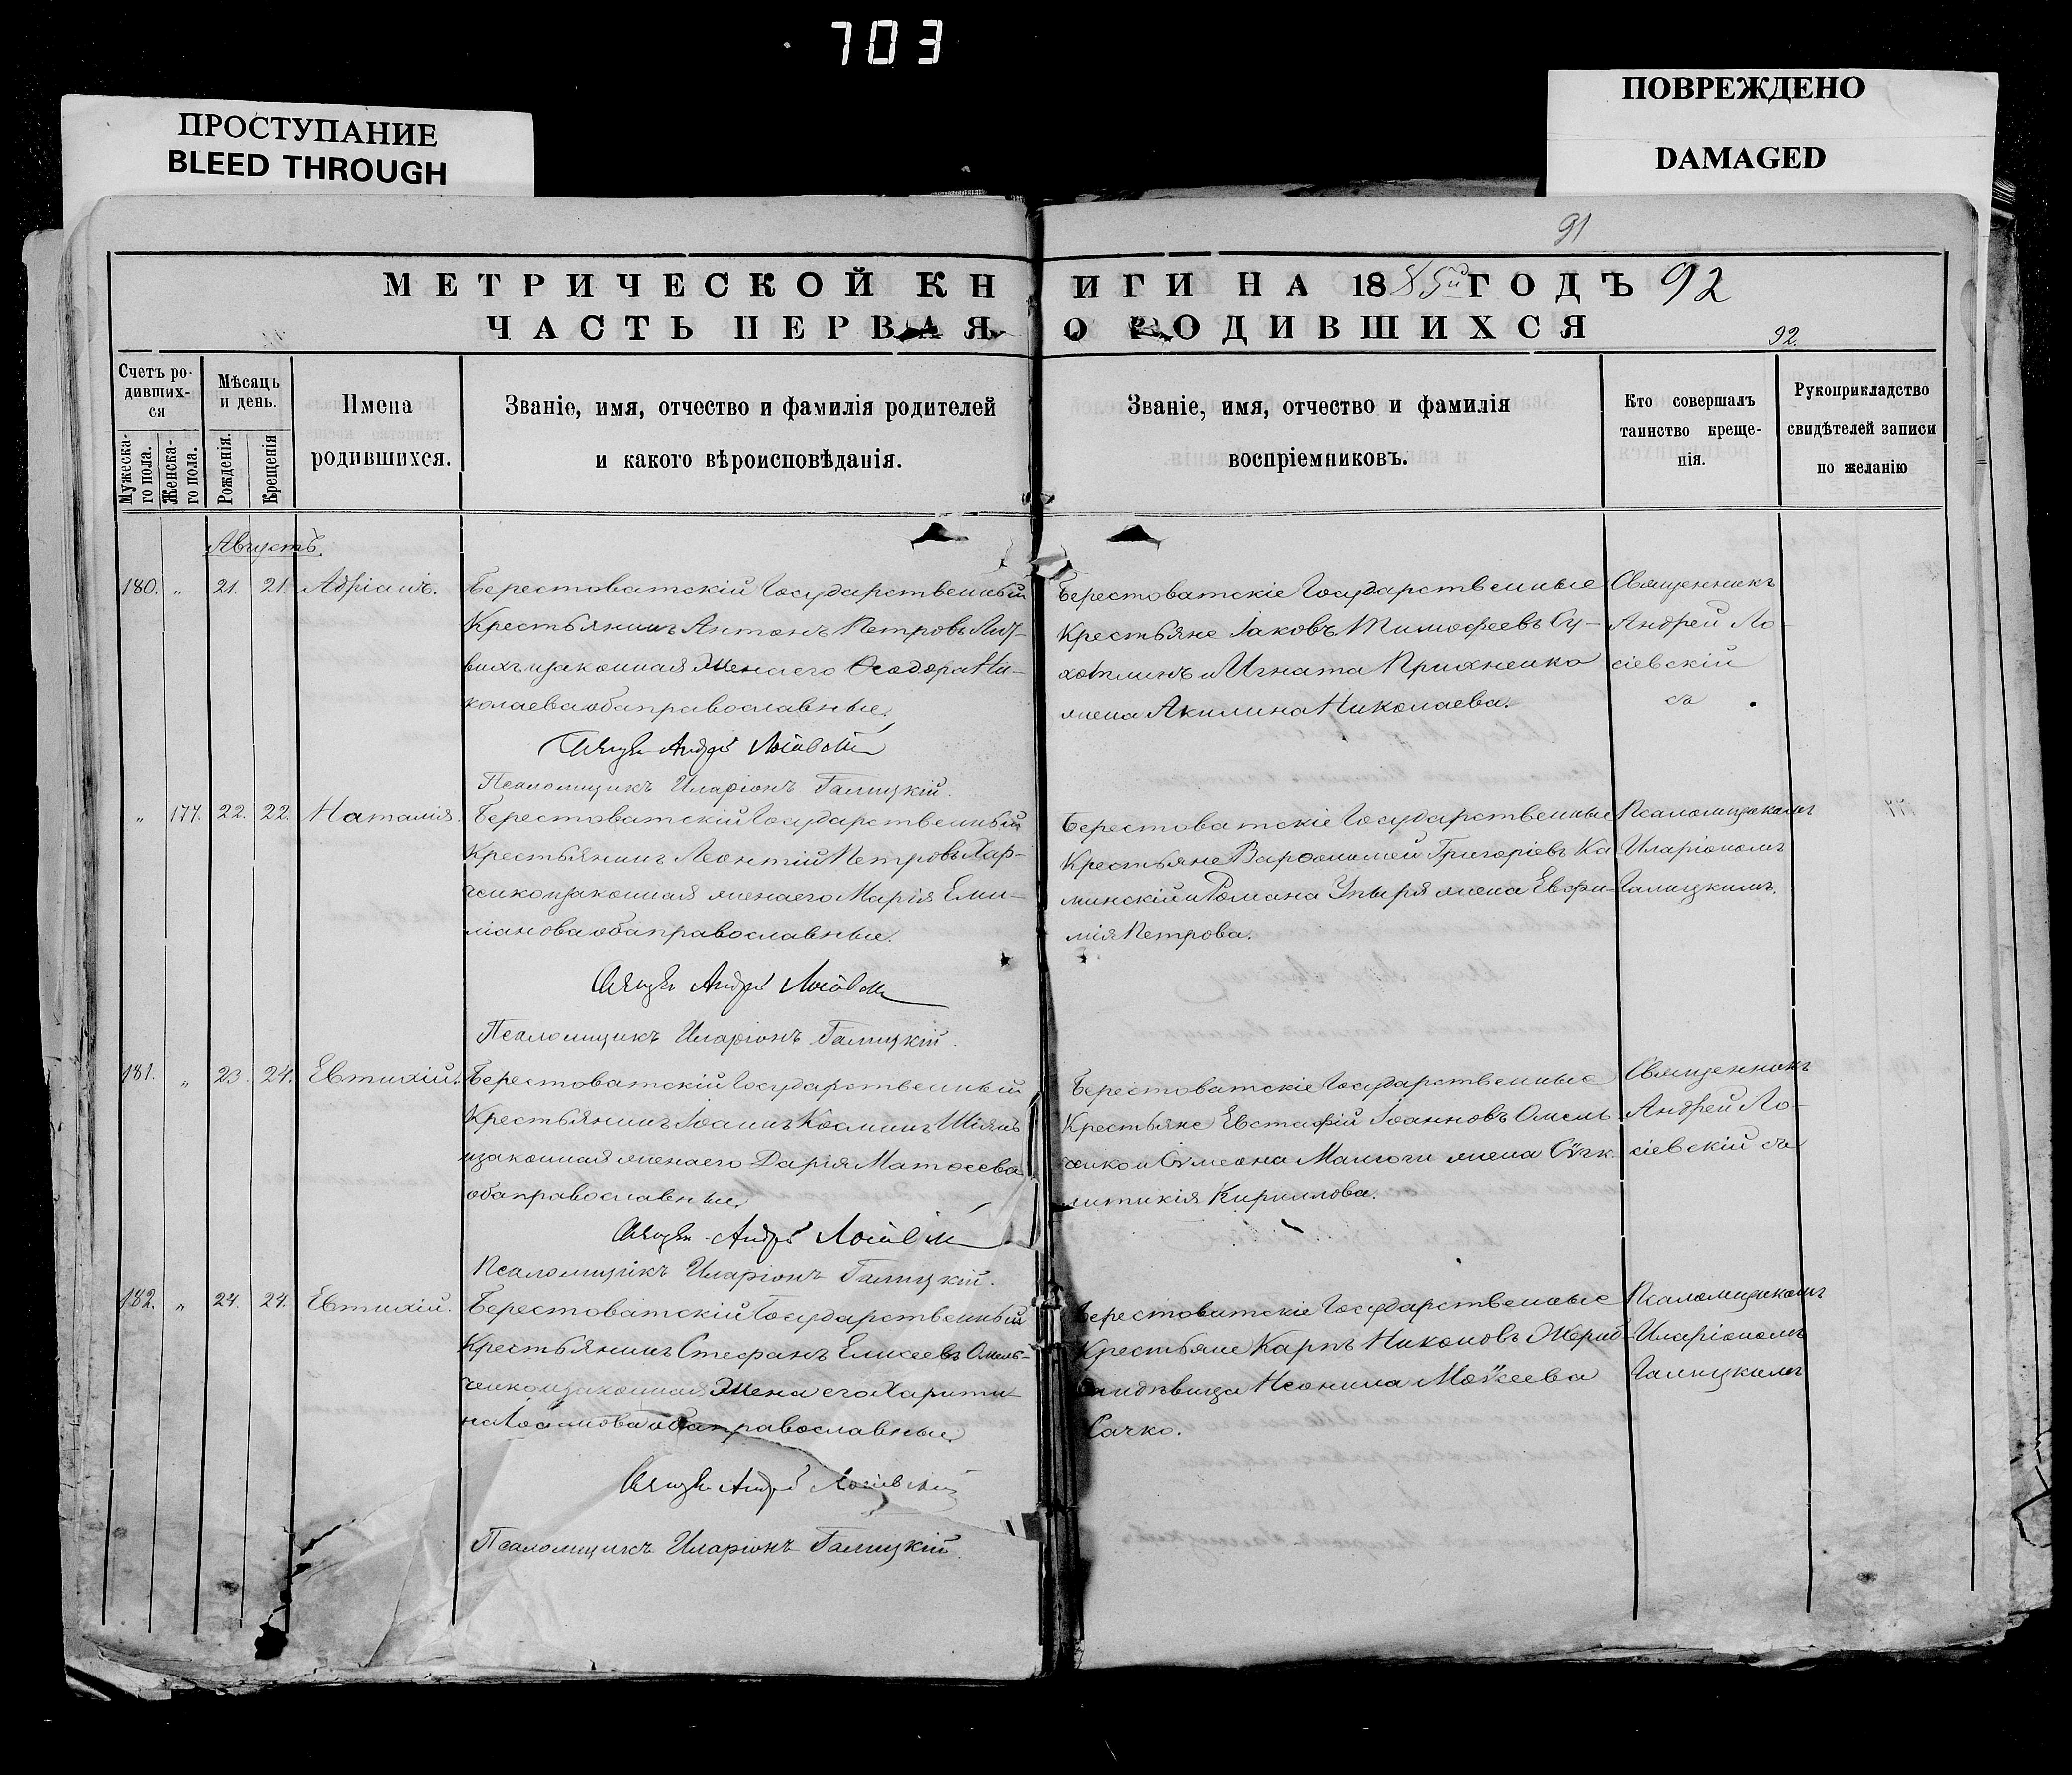 703
ПРОСТУПАНИЕ
BLEED THROUGH
ПОВРЕЖДЕНО
DAMAGED
91
МЕТРИЧЕСКОЙ КНИГИ НА 1885й ГОДЪ 92
ЧАСТЬ ПЕРВАЯ О РОДИВШИХСЯ
92.
Счетъ ро-
дивших-
ся
Мужеска-
го пола.
Женска-
го пола.
Мѣсяцъ
и день.
Рожденія.
Крещенія
Имена
родившихся.
Званіе, имя, отчество и фамилія родителей
и какого вѣроисповѣданія.
Званіе, имя, отчество и фамилія
воспріемниковъ.
Кто совершалъ
таинство креще-
нія.
Рукоприкладство
свидѣтелей записи
по желанію
Августъ.
180. " 21. 21. Адріанъ.
Берестоватскій Государственный
Крестьянинъ Антонъ Петровъ
законная жена его Ѳеодора Ни-
колаева оба православные.
Андрей Лосіевскій
Псаломщикъ Иларіонъ Галицкій.
Берестоватскіе Государственные
Крестьяне Іаковъ Тимоѳеевъ Су-
и Игната Прихненко
жена Акилина Николаева.
Священникъ
Андрей Ло-
сіевскій
съ
" 177. 22. 22. Наталія.
Берестоватскій Государственный
Крестьянинъ Леонтій Петровъ Хар-
ченко и законная жена его Марія Еми-
ліанова оба православные.
Андрей Лосіевскій
Псаломщикъ Иларіонъ Галицкій.
Берестоватскіе Государственные
Крестьяне Варѳоломей Григоріевъ Ка-
минскій и Романа Упыря жена Евфи-
мія Петрова.
Псаломщикомъ
Иларіономъ
Галицкимъ.
181. " 23. 24. Евтихій.
Берестоватскій Государственный
Крестьянинъ Іоаннъ Косминъ Шіянъ
и законная жена его Дарія Матѳеева
оба православные.
Андрей Лосіевскій
Псаломщикъ Иларіонъ Галицкій.
Берестоватскіе Государственные
Крестьяне Евстафій Іоанновъ Омель-
ченко и Сѵмеона жена Сѵнк-
литикія Кириллова.
Священникъ
Андрей Ло-
сіевскій съ
182. " 24. 24. Евтихій.
Берестоватскій Государственный
Крестьянинъ Стефанъ Елисеевъ Омель-
ченко и законная жена его Харити-
на оба православные.
Андрей Лосіевскій
Псаломщикъ Иларіонъ Галицкій.
Берестоватскіе Государственные
Крестьяне Карпъ Никоновъ
и дѣвица Неонила Моѵсеева
Сачко.
Псаломщикомъ
Иларіономъ
Галицкимъ